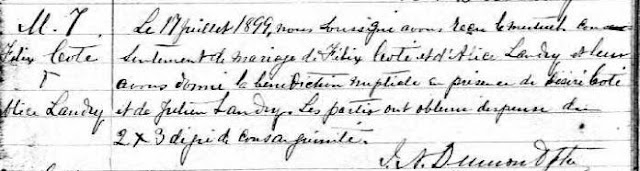 M. 7.
Felix Coté
&
Alice Landry
Le 17 juillet 1899, nous soussigné avons reçu le mutuel con-
sentement de mariage de Félix Coté et d'Alice Landry et leur
avons donné la bénédiction nuptiale en présence de Désiré Coté
et de Julien Landry. Les parties ont obtenu dispense du
2 x 3 degré de consanguinité.
J. A. Dumont Ptre